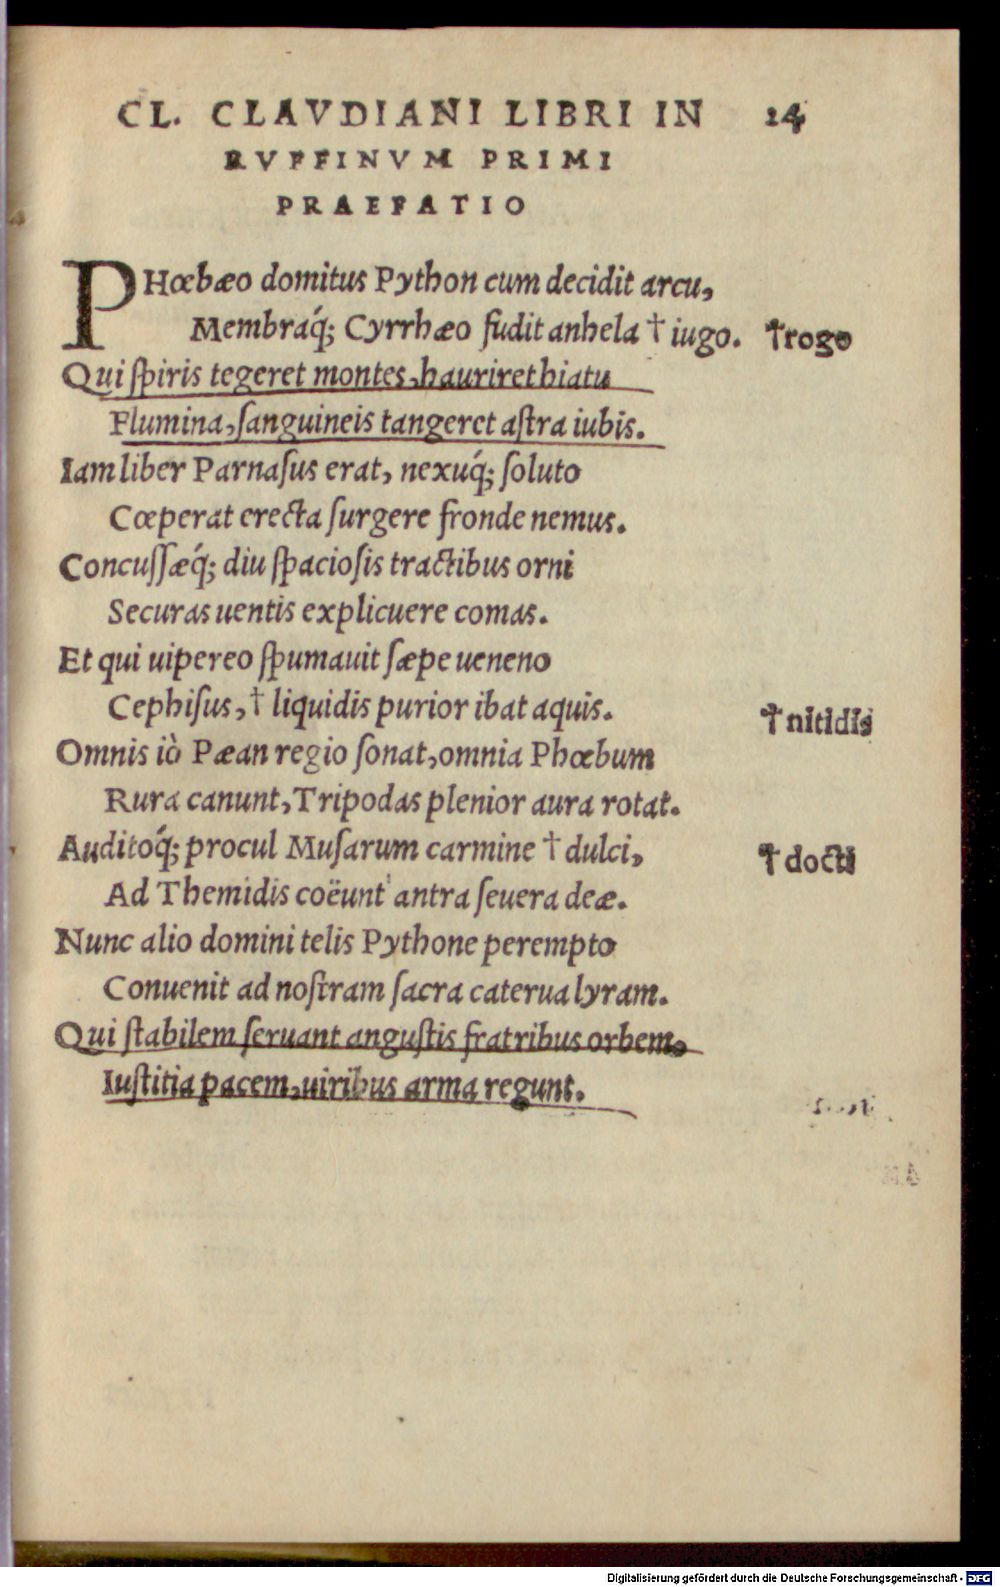 CL. CLAVDIANI LIBRI IN 24
RVFFINVM PRIMI
PRAEFATIO
PHœbæo domitus Python cum decidit arcu,
Membraq́; Cyrrhæo fudit anhela † iugo. †rogo
Qui ſpiris tegeret montes, hauriret hiatu
Flumina, ſanguineis tangeret aſtra iubis.
Iam liber Parnaſus erat, nexuq́; ſoluto
Cœperat erecta ſurgere fronde nemus.
Concuſſæq́; diu ſpacioſis tractibus orni
Securas uentis explicuere comas.
Et qui uipereo ſpumauit ſæpe ueneno
Cephiſus, † liquidis purior ibat aquis. †nitidis
Omnis iò Pæan regio ſonat, omnia Phœbum
Rura canunt, Tripodas plenior aura rotat.
Auditoq́; procul Muſarum carmine † dulci, †docti
Ad Themidis coëunt antra ſeuera deæ.
Nunc alio domini telis Pythone perempto
Conuenit ad noſtram ſacra caterua lyram.
Qui ſtabilem ſeruant anguſtis fratribus orbem,
Iuſtitia pacem, uiribus arma regunt.
Digitalisierung gefördert durch die Deutsche Forschungsgemeinschaft - DFG